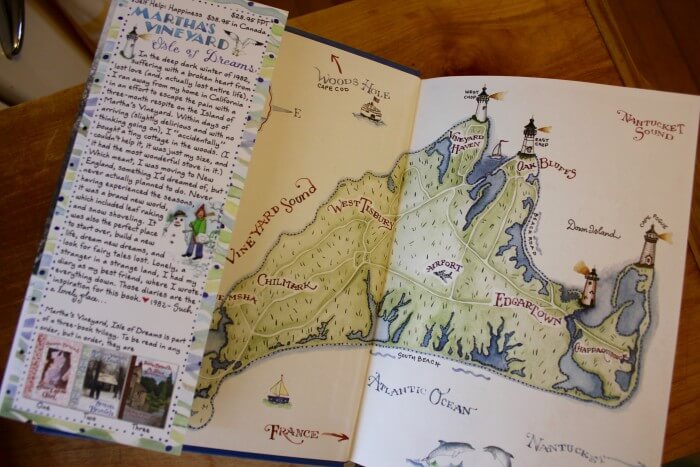 Self Help: Happiness $28.95 FPT
$38.95 in Canada
MARTHA'S
VINEYARD
Isle of Dreams
In the deep dark winter of 1982,
suffering with a broken heart from
lost love (and, actually, lost entire life)
I ran away from my home in California
in an effort to escape the pain with a
three-month respite on the Island of
Martha's Vineyard. Within days of
arriving (slightly delirious and not
thinking going on), I "accidentally"
bought a tiny cottage in the woods. (I
couldn't help it, it was just my size, and
it had the most wonderful stove in it.)
Which meant, I was moving to New
England, something I'd dreamed of, but
never actually planned to do. Never
having experienced the seasons,
it was a brand new world,
which included leaf raking
and snow shoveling. It
was also the perfect place
to start over, build a new
life, dream new dreams, and
look for fairy tales lost. Lonely, a
stranger in a strange land, I kept my
diary as my best friend, where I wrote
everything down. Those diaries are the
inspiration for this book. ♥ 1982 - Such
a lovely place...
Martha's Vineyard, Isle of Dreams is part
of a three-book trilogy. To be read in any
order, but in order, they are
One
Two
Three
WOODS HOLE
CAPE COD
E
VINEYARD SOUND
WEST TISBURY
CHILMARK
EMSHA
FRANCE
WEST CHOP
VINEYARD
HAVEN
EAST
CHOP
OAK BLUFFS
NANTUCKET
SOUND
Dream Island
CAPE POGUE
AIRPORT
EDGARTOWN
CHAPPAQUIDDICK
SOUTH BEACH
ATLANTIC OCEAN
NANTUCKET